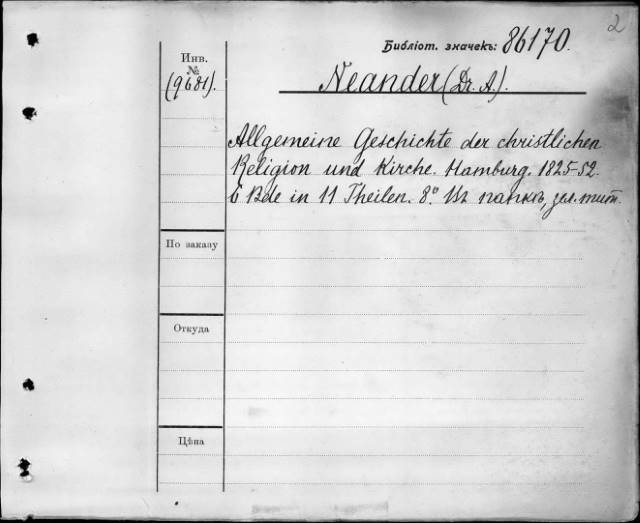 2
Библіот. значекъ: 86170.
Инв.
№
(9681).
Neander (Dr. A.).
Allgemeine Geschichte der christlichen
Religion und Kirche. Hamburg. 1825-52.
6 Bde in 11 Theilen. 8º. Въ папкѣ, зел. тит.
По заказу
Откуда
Цѣна